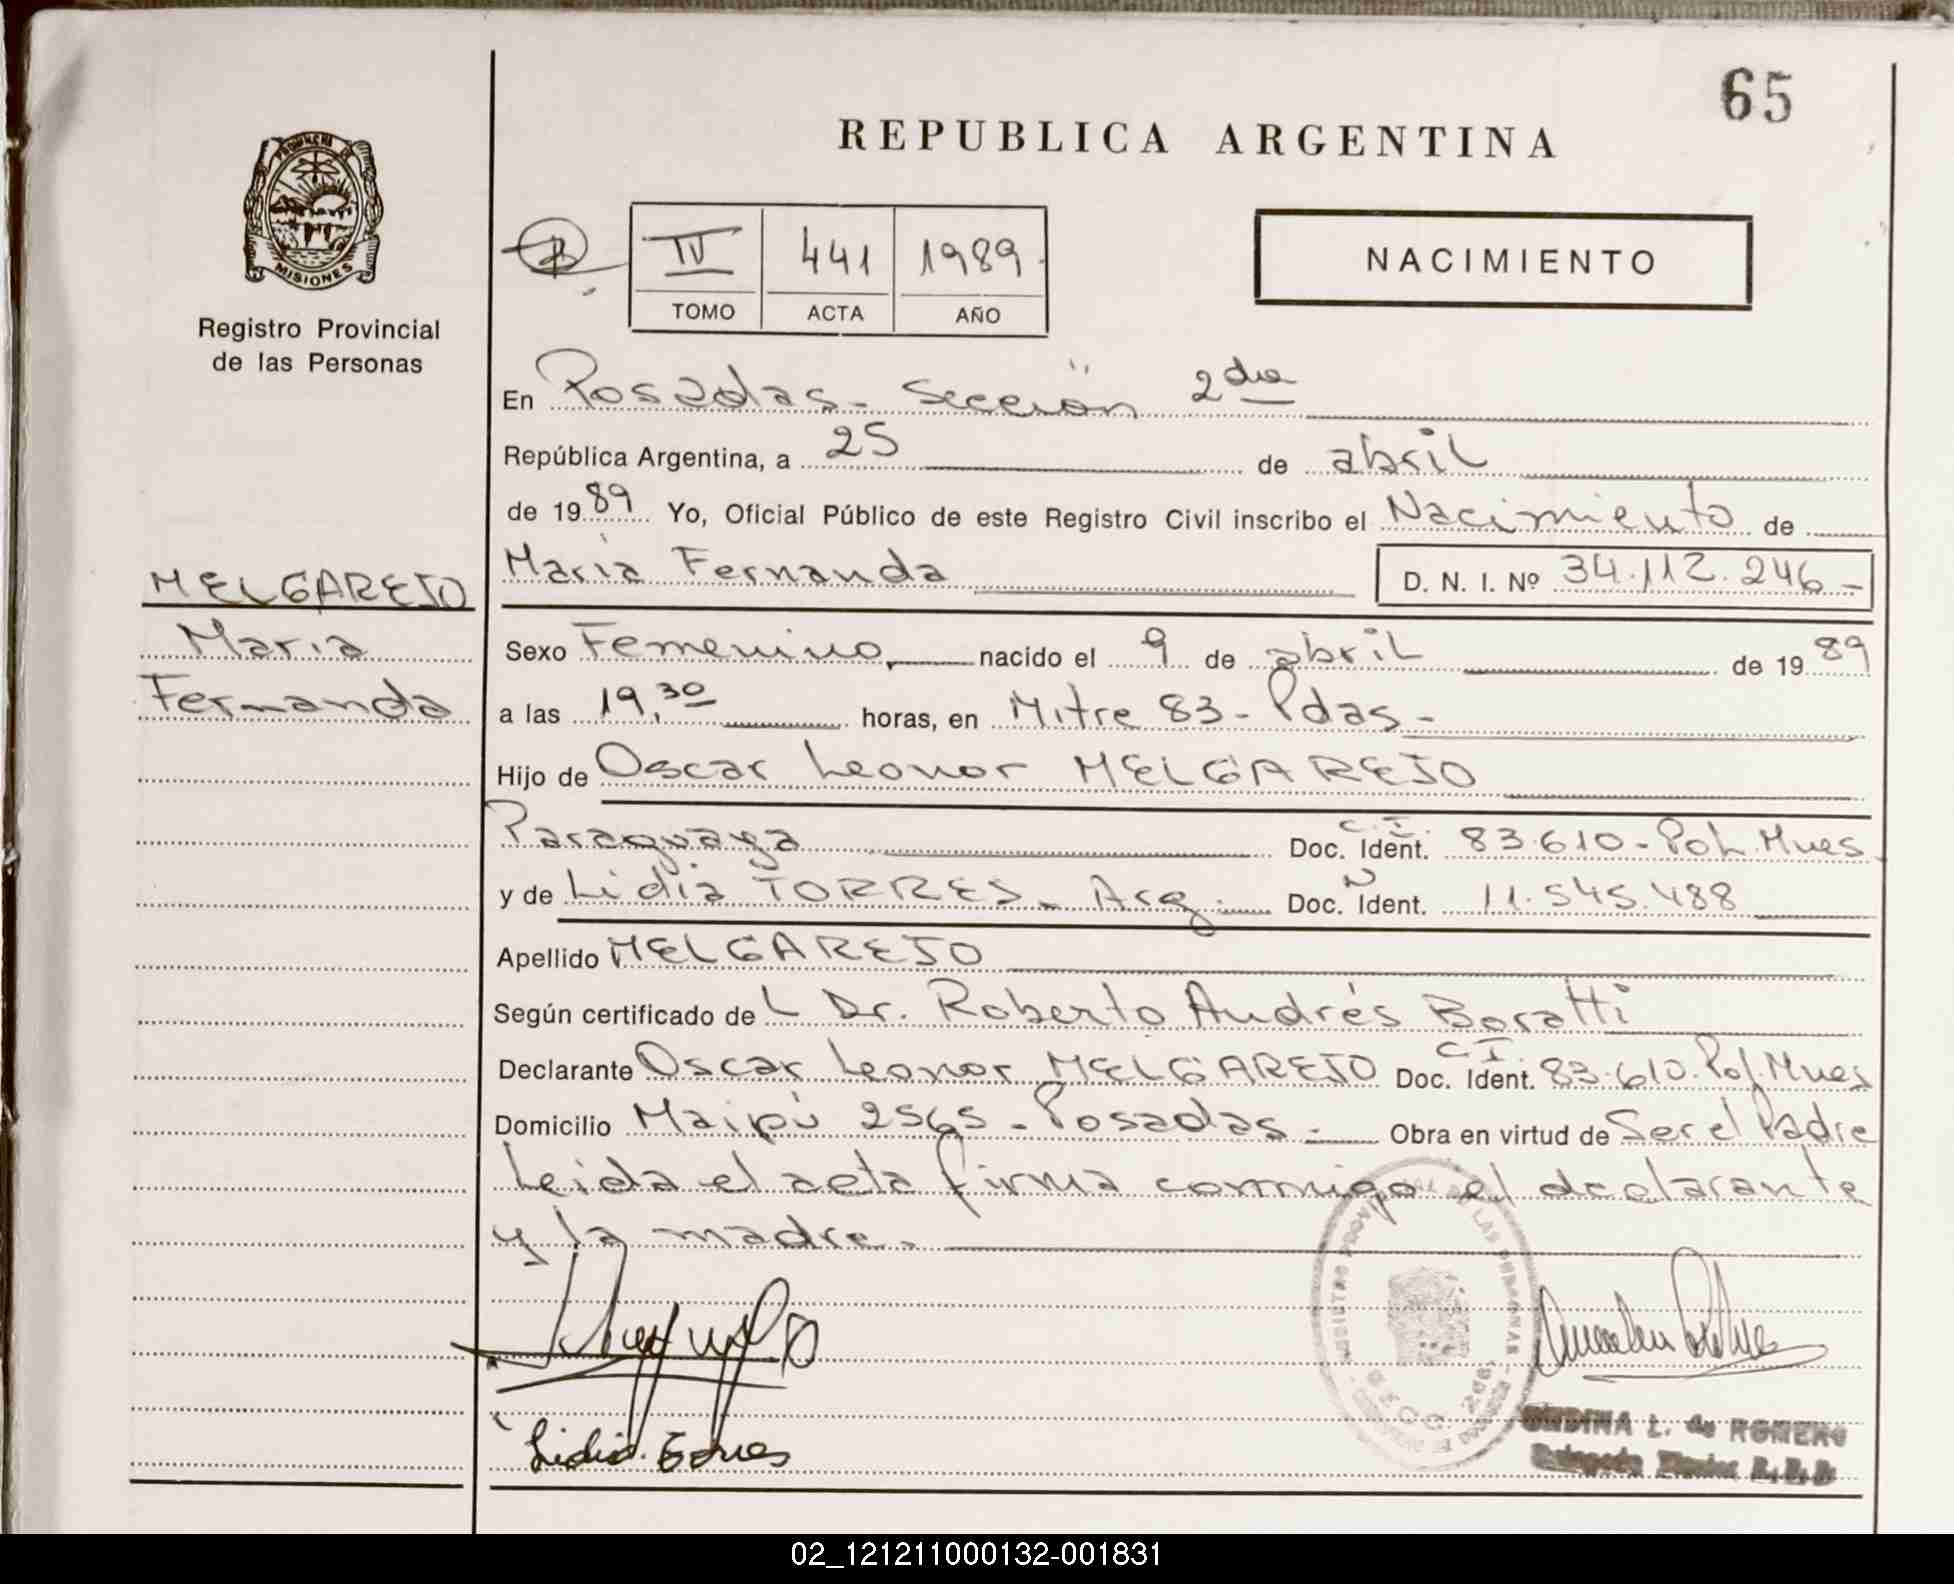 65
REPUBLICA ARGENTINA
PROVINCIA DE
MISIONES
Registro Provincial
de las Personas
IV 441 1989
TOMO ACTA AÑO
NACIMIENTO
En Posadas - Sección 2da
República Argentina, a 25 de abril
de 1989 Yo, Oficial Público de este Registro Civil inscribo el Nacimiento de
María Fernanda D. N. I. Nº 34.112.246-
MELGAREJO
Maria
Fernanda
Sexo Femenino, nacido el 9 de abril de 1989
a las 19,30 horas, en Mitre 83 - Pdas -
Hijo de Oscar Leonor MELGAREJO
Paraguaya Doc. Ident. C.I. 83.610 - Pol. Mnes
y de Lidia TORRES - Arg. Doc. N Ident. 11.545.488
Apellido MELGAREJO
Según certificado del Dr. Roberto Andrés Boratti
Declarante Oscar Leonor MELGAREJO Doc. Ident. C.I. 83.610. Pol. Mnes
Domicilio Maipú 2565 - Posadas - Obra en virtud de Ser el Padre
Leida el acta firma conmigo el declarante
y la madre.
Lidia Torres
ONDINA L. de ROMERO
02_121211000132-001831